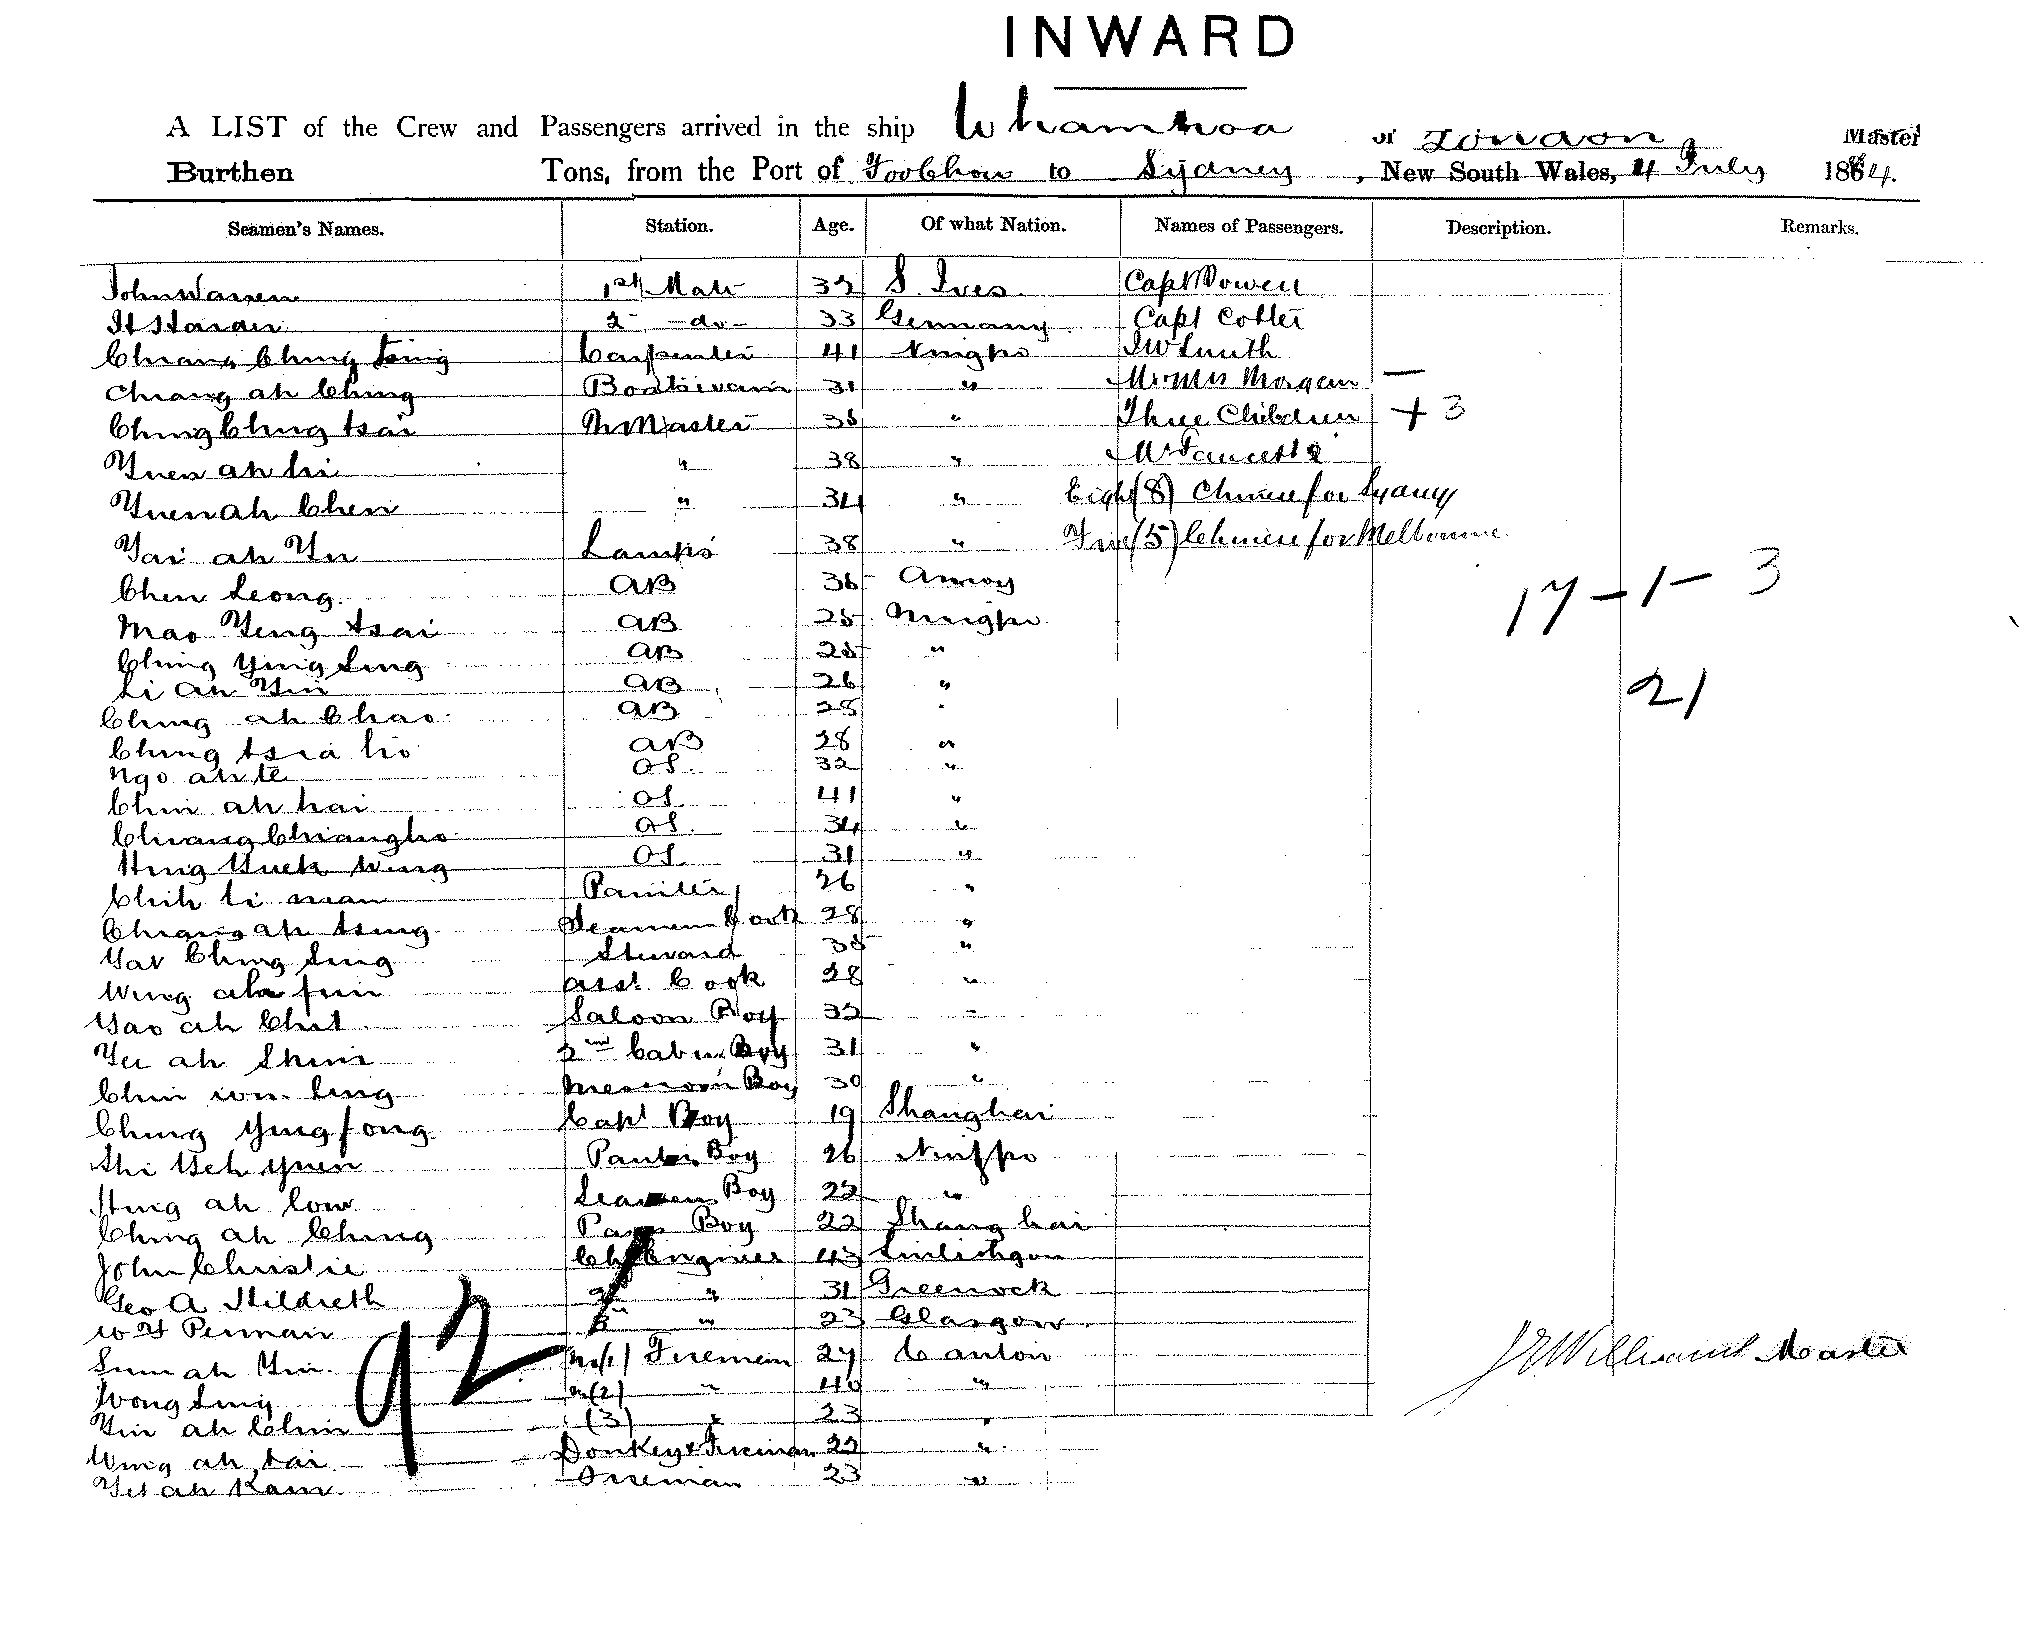 INWARD
A LIST of the Crew and Passengers arrived in the ship Whampoa of London Master
Burthen Tons, from the Port of FooChow to Sydney, New South Wales, 4 July 1884.
Seamen's Names. Station. Age. Of what Nation. Names of Passengers. Description. Remarks.
John Warren 1st Mate 32 S. Ives Capt
2 do 33 Germany Capt Cotter
Chiang Ching tsing Carpenter 41 Ningpo J W Smith
Chiang ah Ching Boatswain 31 " Mr Mrs Morgan —
Ching Ching tsai 35 " Three Children + 3
Yuen ah li " 38 "
Yuen ah Chen " 34 " Eight (8) Chinese for Sydney
Yai ah Yu Lamps 38 " Five (5) Chinese for Melbourne
Chen Leong AB 36 Amoy
17 - 1 - 3
Mao Yeng tsai AB 25 Ningpo
Ching Ying Ling AB 25 "
Li ah Yin AB 26 "
21
Ching ah Chao AB 28 "
Ching tsia ho AB 28 "
Ngo ah te OS 32 "
Chin ah hai OS 41 "
Chiang Chiangho OS 34 "
Hing Yuck Wing OS 31 "
Chih li man 26 "
Chiang ah tsing Seamens Cook 28 "
Ching Sing Steward 35 "
Wing ah fun asst Cook 28 "
Yao ah Chit Saloon Boy 32 "
Yu ah Shin 2nd Cabin Boy 31 "
Chin Ling Messroom Boy 30 "
Ching Ying fong Capt Boy 19 Shanghai
Shi Yeh Yuen Boy 26 Ningpo
Hing ah low Seamen Boy 22 "
Ching ah Ching Boy 22 Shanghai
John Christie Ch Engineer 43 Linlithgow
Geo A Hildreth 2 " 31 Greenock
W Y Penman 3 " 23 Glasgow
92
Sum ah Yin No (1) Fireman 27 Canton
J E Williams Master
Wong Sing (2) " 40 "
Yin ah Chin (3) " 23 "
Wing ah tai Donkey & Fireman 22 "
ah Kam Fireman 23 "